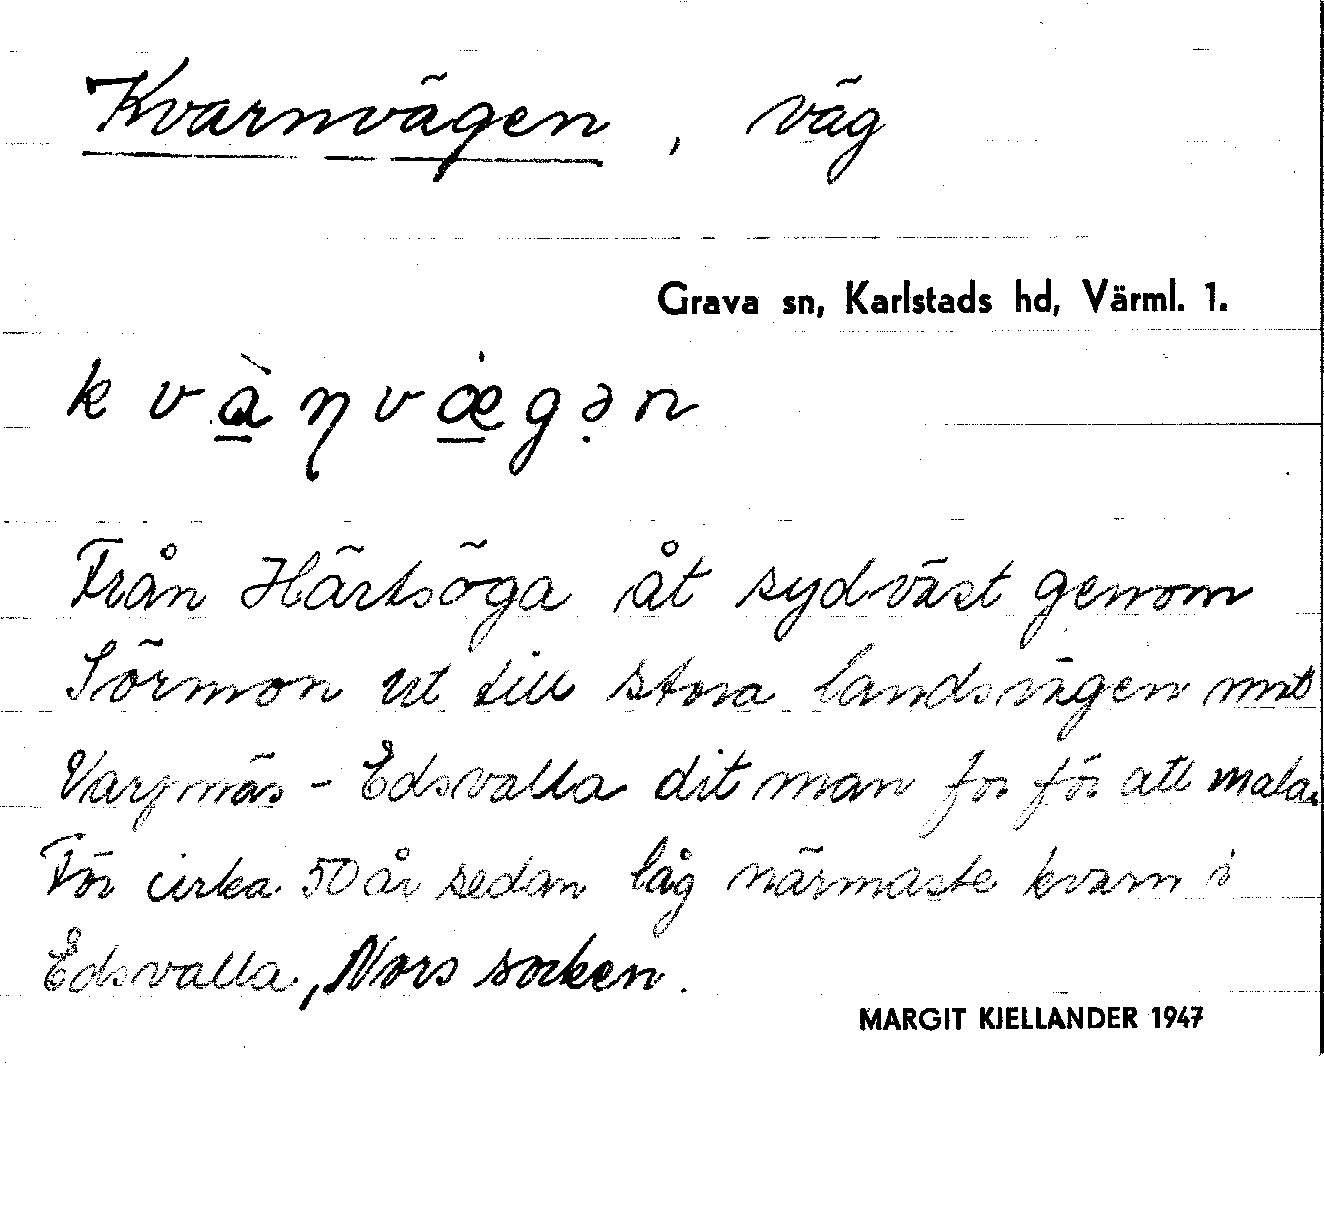 Kvarnvägen, väg
Grava sn, Karlstads hd, Värml. 1.
kvàṇvǽgən
Från Härtsöga åt sydväst genom
Sörmon ut till stora landsvägen mot
Vargnäs - Edsvalla dit man for för att mala.
För cirka 50 år sedan låg närmaste kvarn i
Edsvalla, Nors socken.
MARGIT KJELLANDER 1947